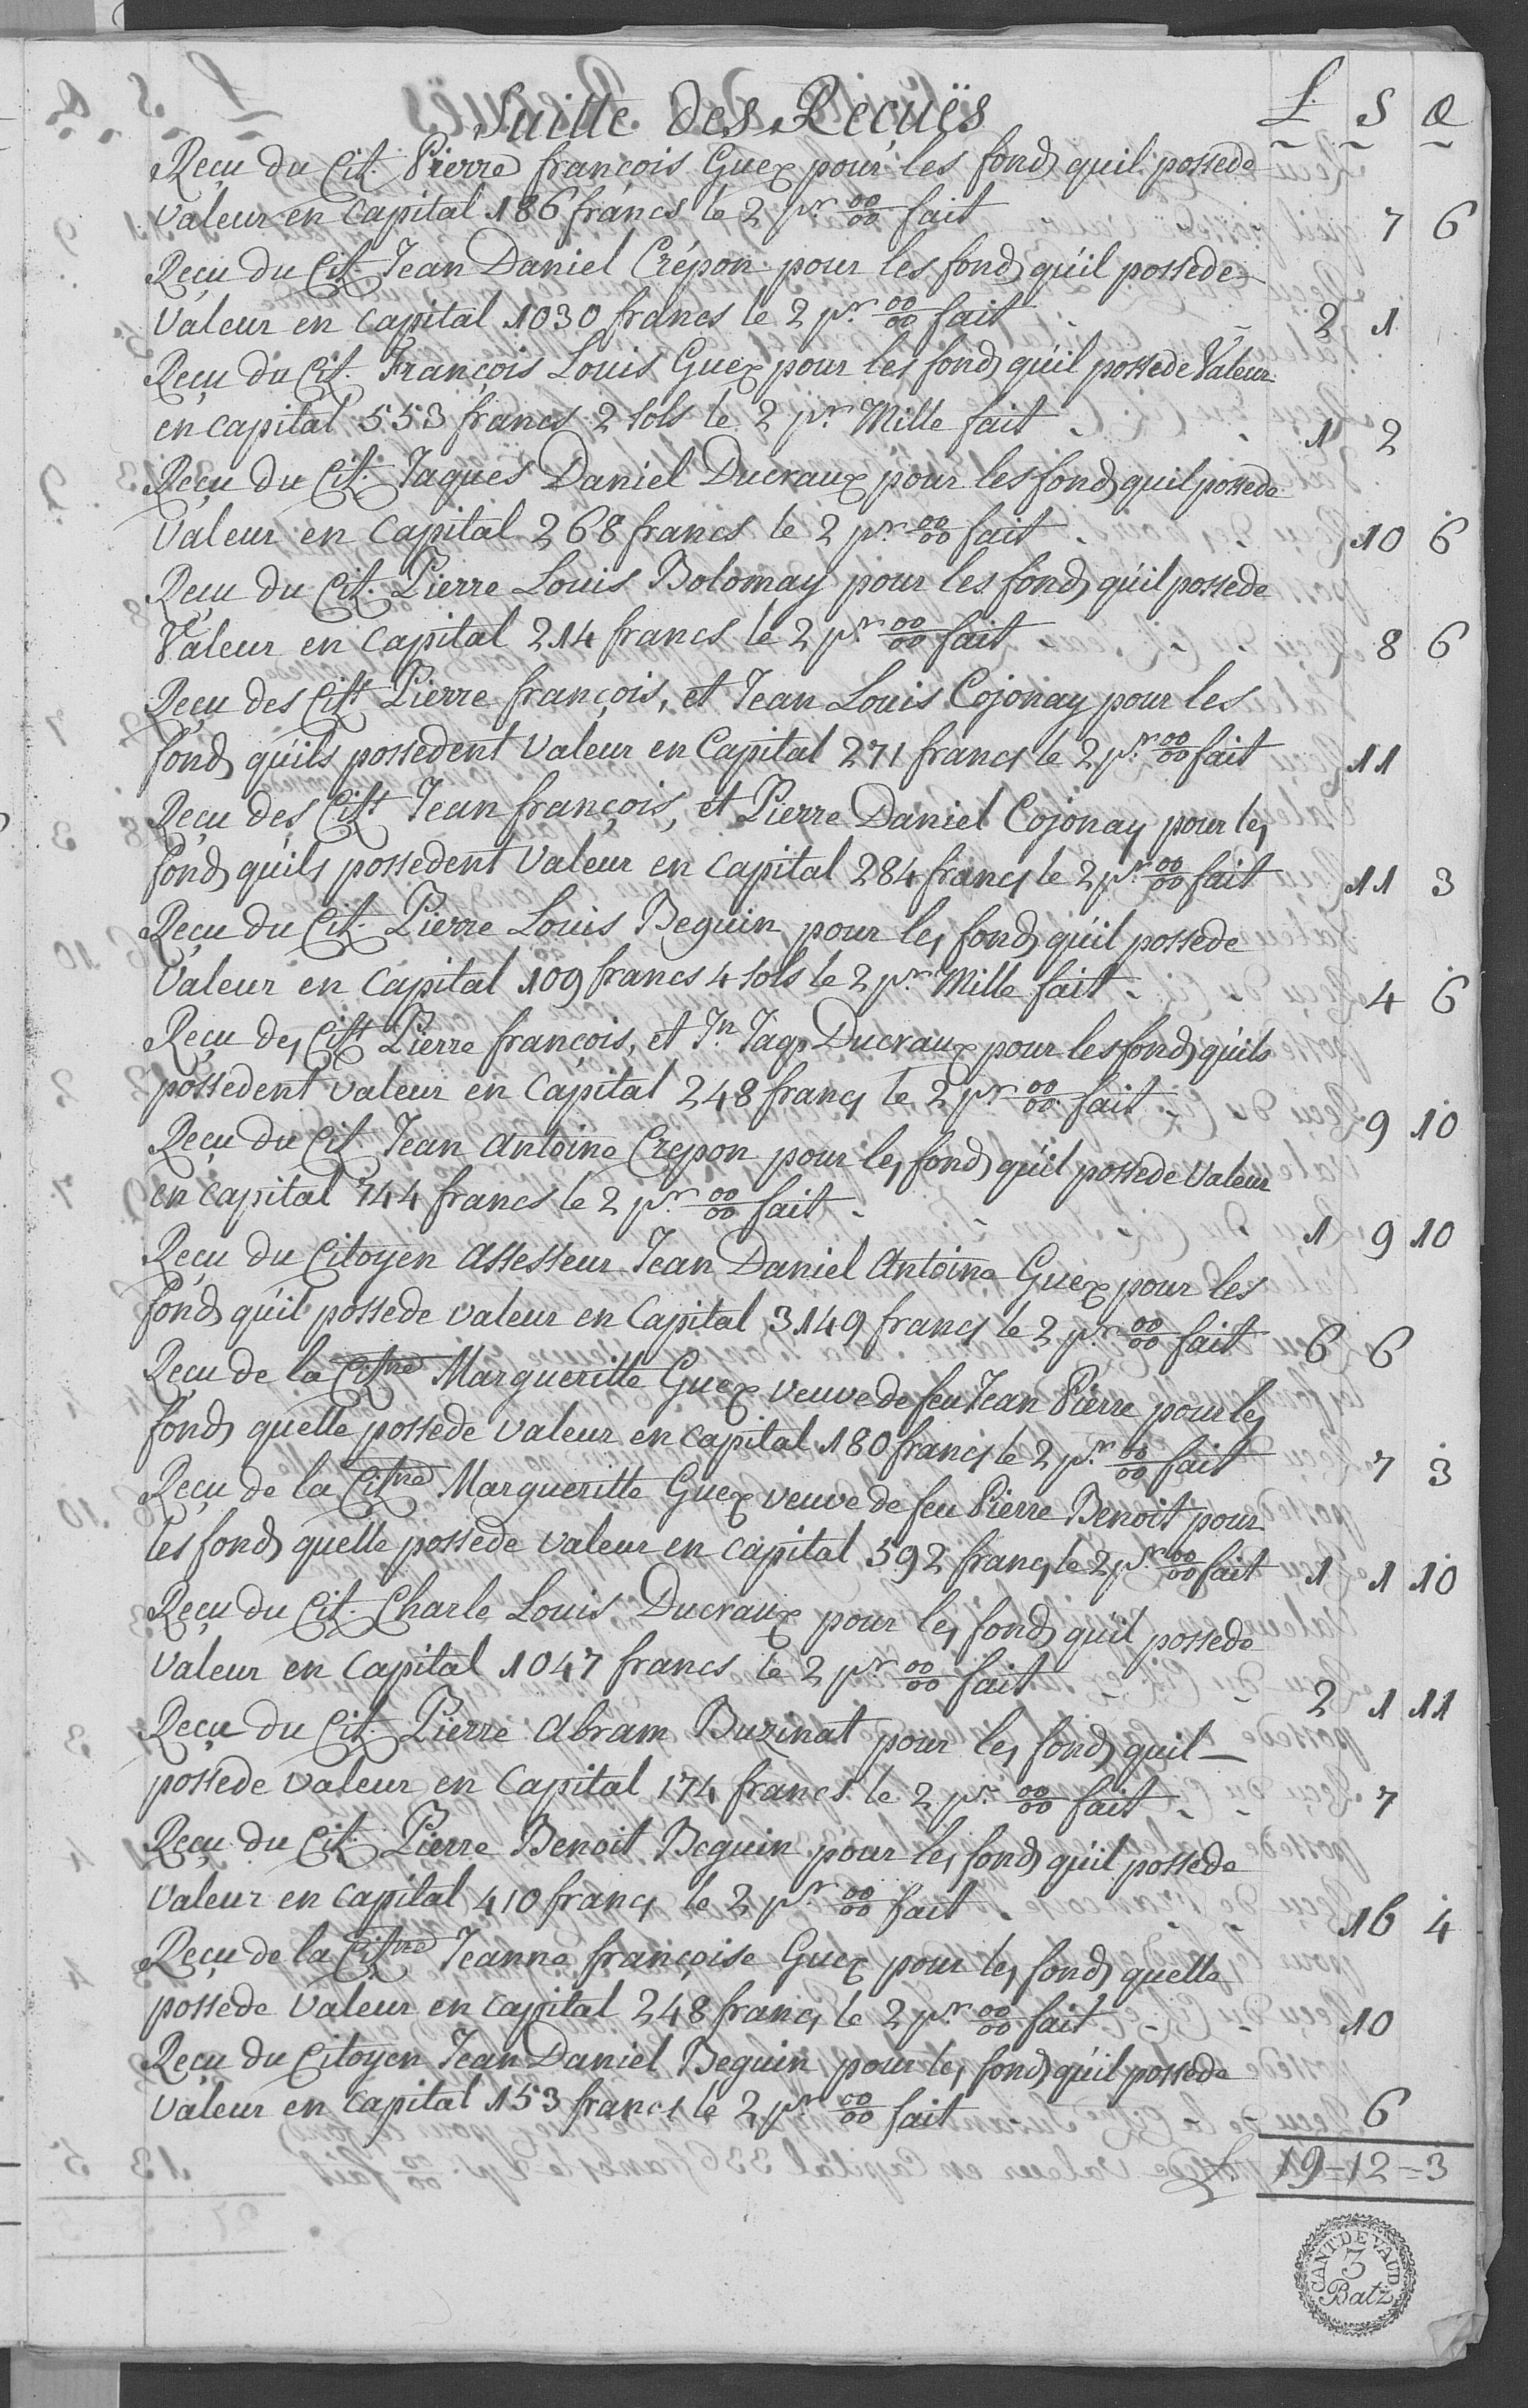 Suitte des Reçuës L. S D
Reçu du Cit. Pierre françois Guex pour les fonds quil possede
valeur en Capital 186 francs le 2 pr. 00/00 fait 7 6
Reçu du Cit. Jean Daniel Crépon pour les fonds qu'il possede
Valeur en Capital 1030 francs le 2 pr. 00/00 fait 2 1
Reçu du Cit. François Louis Guex pour les fonds qu'il possede Valeur
en capital 553 francs 2 sols le 2 pr. Mille fait 1 2
Reçu du Cit. Jaques Daniel Ducraux pour les fonds quil possede
Valeur en Capital 268 francs le 2 pr. 00/00 fait 10 6
Reçu du Cit. Pierre Louis Bolomay pour les fonds qu'il possede
Valeur en Capital 214 francs le 2 pr. 00/00 fait 8 6
Reçu des Citt Pierre françois, et Jean Louis Cojonay pour les
fonds qu'ils possedent Valeur en Capital 271 francs le 2 pr. 00/00 fait 11
Reçu des Citt Jean françois, et Pierre Daniel Cojonay pour les
fonds qu'ils possedent Valeur en Capital 284 francs le 2 pr. 00/00 fait 11 3
Reçu du Cit. Pierre Louis Beguin pour les fonds qu'il possede
Valeur en Capital 109 francs 4 sols le 2 pr. Mille fait 4 6
Reçu des Citt Pierre françois, et Jn. Jaqs Ducraux pour les fonds qu'ils
possedent valeur en Capital 248 francs le 2 pr. 00/00 fait 9 10
Reçu du Cit. Jean Antoine Crepon pour les fonds qu'il possede Valeur
en Capital 744 francs le 2 pr. 00/00 fait 1 9 10
Reçu du Citoyen Assesseur Jean Daniel Antoine Guex pour les
fonds qu'il possede valeur en Capital 3149 francs le 2 pr. 00/00 fait 6 6
Reçu de la Citne Margueritte Guex veuve de feu Jean Pierre pour les
fonds quelle possede Valeur en Capital 180 francs le 2 pr. 00/00 fait 7 3
Reçu de la Citne Margueritte Guex veuve de feu Pierre Benoit pour
les fonds quelle possede valeur en capital 592 francs le 2 pr. 00/00 fait 1 1 10
Reçu du Cit. Charle Louis Ducraux pour les fonds qu'il possede
Valeur en Capital 1047 francs le 2 pr. 00/00 fait 2 1 11
Reçu du Cit. Pierre Abram Buzinat pour les fonds quil
possede Valeur en Capital 174 francs le 2 pr. 00/00 fait 7
Reçu du Cit. Pierre Benoit Beguin pour les fonds qu'il possede
Valeur en Capital 410 francs le 2 pr. 00/00 fait 16 4
Reçu de la Citne Jeanne françoise Guex pour les fonds quelle
possede Valeur en Capital 248 francs le 2 pr. 00/00 fait 10
Reçu du Citoyen Jean Daniel Beguin pour les fonds qu'il possede
Valeur en Capital 153 francs le 2 pr. 00/00 fait 6
L. 19=12=3
CANT. DE VAUD
3
Batz.